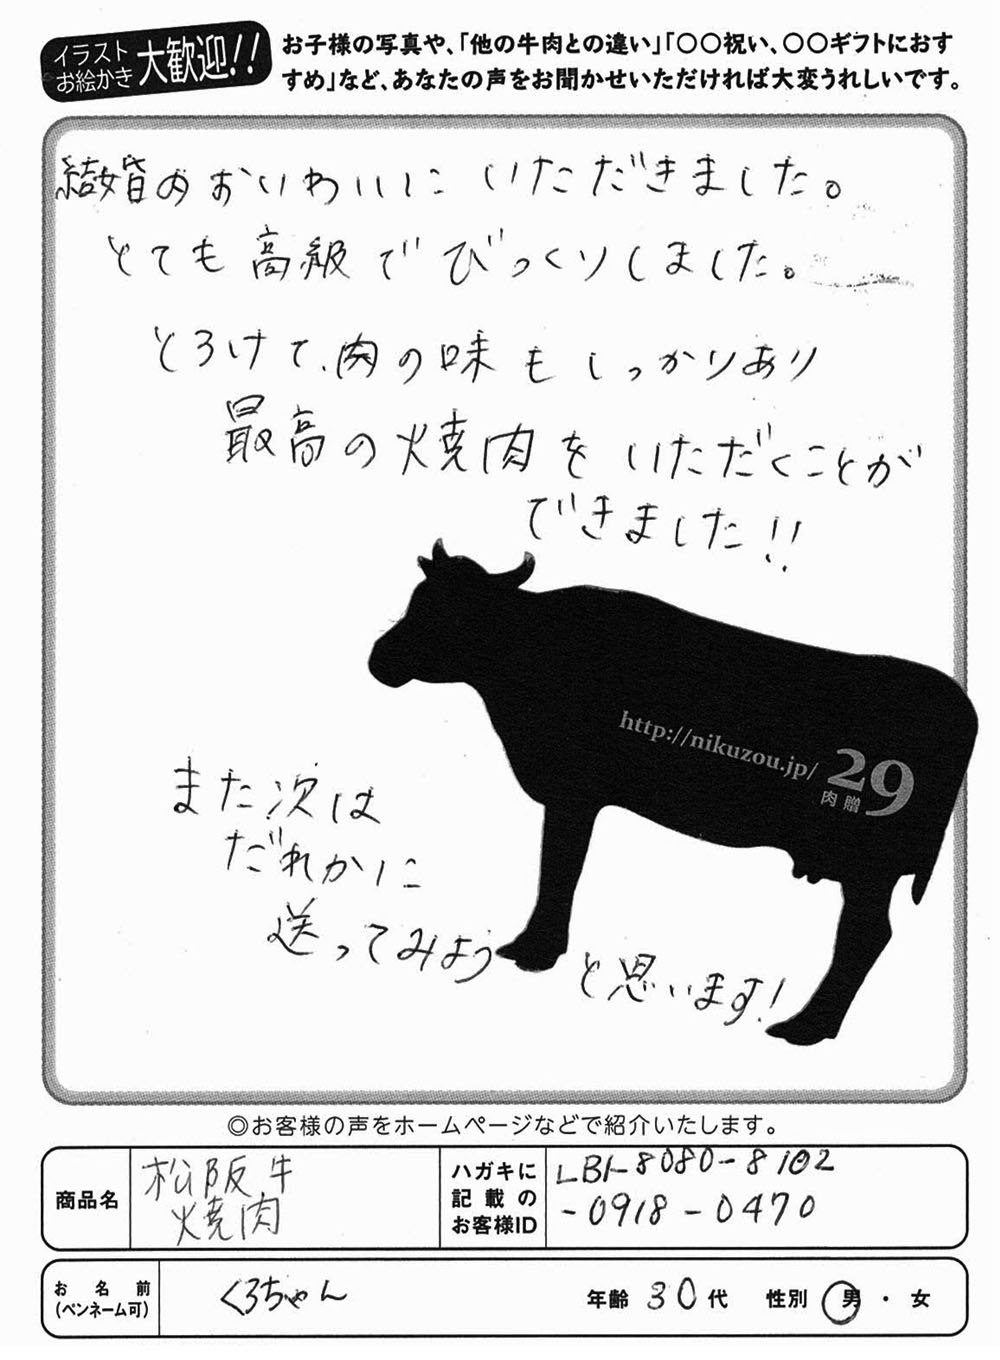 イラスト
お絵かき
大歓迎!!
お子様の写真や、「他の牛肉との違い」「〇〇祝い、〇〇ギフトにおす
すめ」など、あなたの声をお聞かせいただければ大変うれしいです。
結婚のおいわいに いただきました。
とても高級でびっくりしました。
とろけて、肉の味もしっかりあり
最高の焼肉をいただくことが
できました!!
http://nikuzou.jp/
29
肉贈
また次は
だれかに
送ってみよう と思います!
◎お客様の声をホームページなどで紹介いたします。
商品名
松阪牛
焼肉
ハガキに
記載の
お客様ID
8080-8102
-0918-0470
お名前
(ペンネーム可)
くろちゃん
年齢 30代 性別 男・女